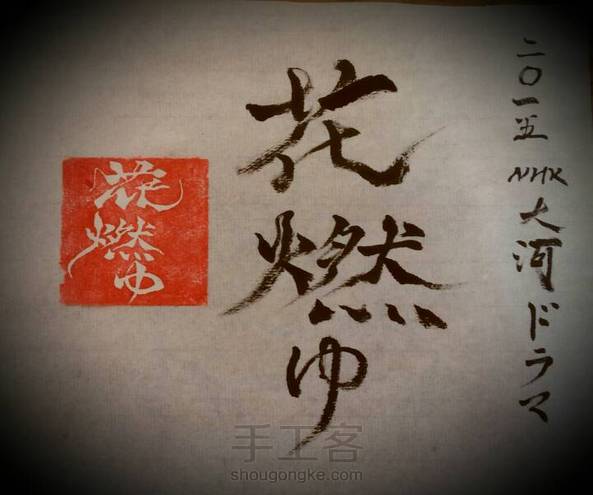 二〇一五 NHK 大河ドラマ
花燃ゆ
花燃ゆ
手工客
shougongke.com